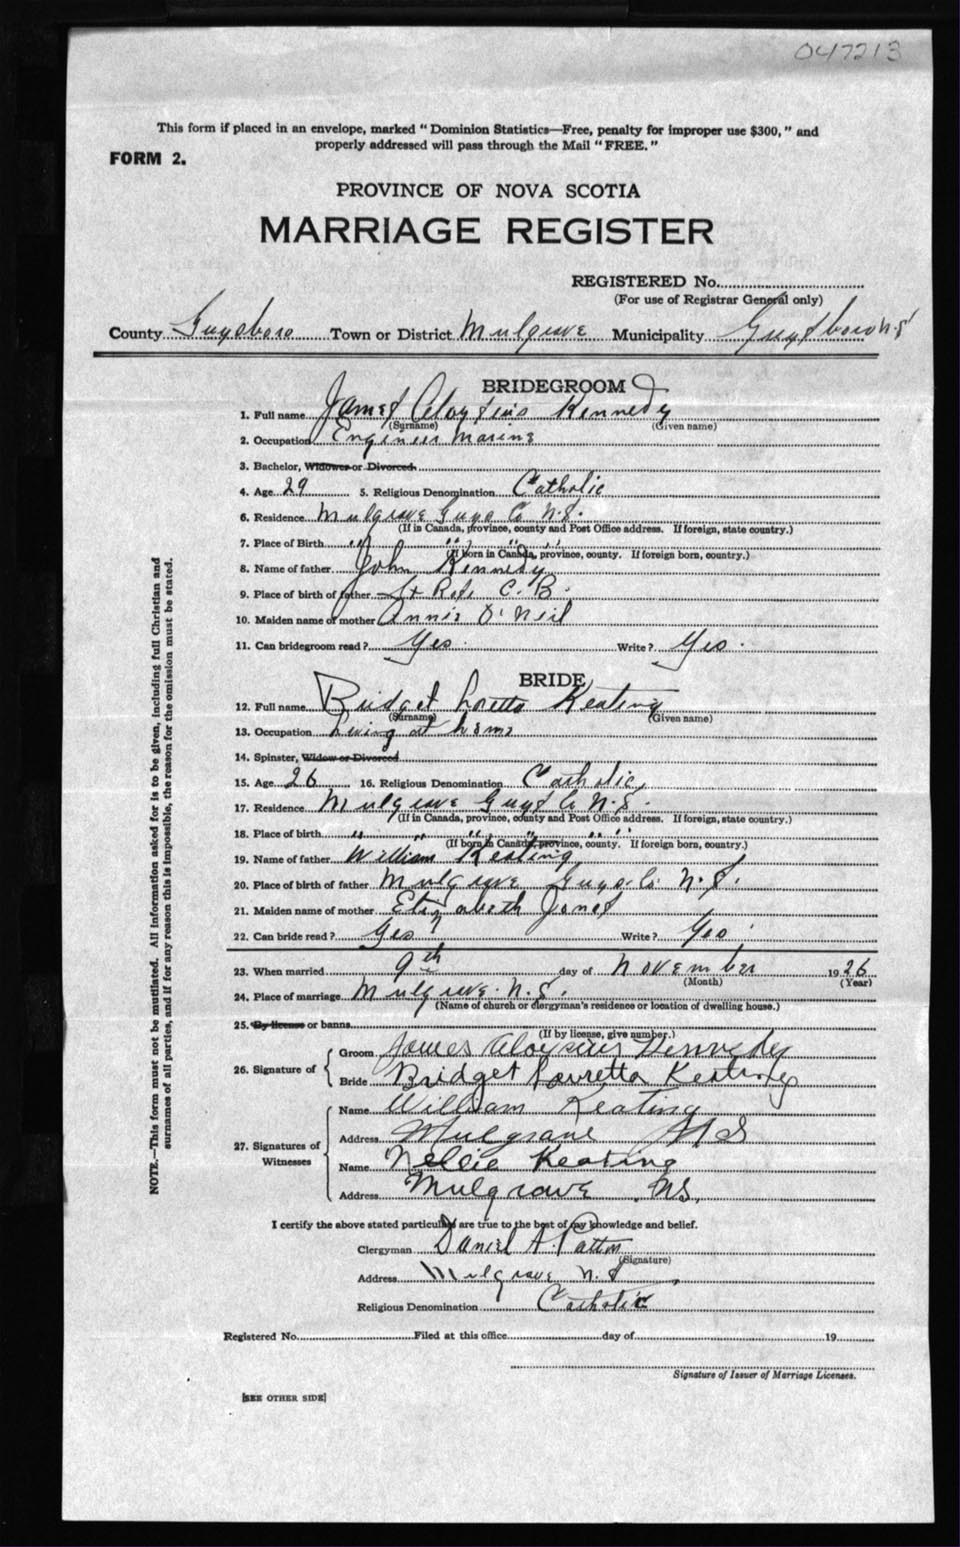 047213
This form if placed in an envelope, marked "Dominion Statistics—Free, penalty for improper use $300," and
properly addressed will pass through the Mail "FREE."
FORM 2.
PROVINCE OF NOVA SCOTIA
MARRIAGE REGISTER
REGISTERED No.
(For use of Registrar General only)
County Guysboro Town or District Mulgrave Municipality Guysboro N.S
BRIDEGROOM
1. Full name James Aloysius Kennedy
(Surname) (Given name)
2. Occupation Engineer Marine
3. Bachelor, Widower or Divorced
4. Age 29 5. Religious Denomination Catholic
6. Residence Mulgrave Guys Co N.S.
(If in Canada, province, county and Post Office address. If foreign, state country.)
7. Place of Birth " " " " "
(If born in Canada, province, county. If foreign born, country.)
8. Name of father John Kennedy
9. Place of birth of father St C. B.
10. Maiden name of mother Annie O'Neil
11. Can bridegroom read? Yes. Write? Yes.
BRIDE
12. Full name Bridget Loretto Keating
(Surname) (Given name)
13. Occupation Living at home
14. Spinster, Widow or Divorced
15. Age 26 16. Religious Denomination Catholic
17. Residence Mulgrave Guys Co N.S.
(If in Canada, province, county and Post Office address. If foreign, state country.)
18. Place of birth " " " " "
(If born in Canada, province, county. If foreign born, country.)
19. Name of father William Keating
20. Place of birth of father Mulgrave Guys. Co. N.S.
21. Maiden name of mother Elizabeth Jones
22. Can bride read? Yes Write? Yes
23. When married 9th day of November 1926
(Month) (Year)
24. Place of marriage Mulgrave. N.S.
(Name of church or clergyman's residence or location of dwelling house.)
25. By license or banns
(If by license, give number.)
26. Signature of
Groom James Aloysius Kennedy
Bride Bridget Lauretta Keating
27. Signatures of Witnesses
Name William Keating
Address Mulgrave N S
Name Nellie Keating
Address Mulgrave N.S.
I certify the above stated particulars are true to the best of my knowledge and belief.
Clergyman Daniel A.
(Signature)
Address Mulgrave N.S
Religious Denomination Catholic
Registered No. Filed at this office day of 19
Signature of Issuer of Marriage Licenses.
[SEE OTHER SIDE]
NOTE.—This form must not be mutilated. All information asked for is to be given, including full Christian and
surnames of all parties, and if for any reason this is impossible, the reason for the omission must be stated.